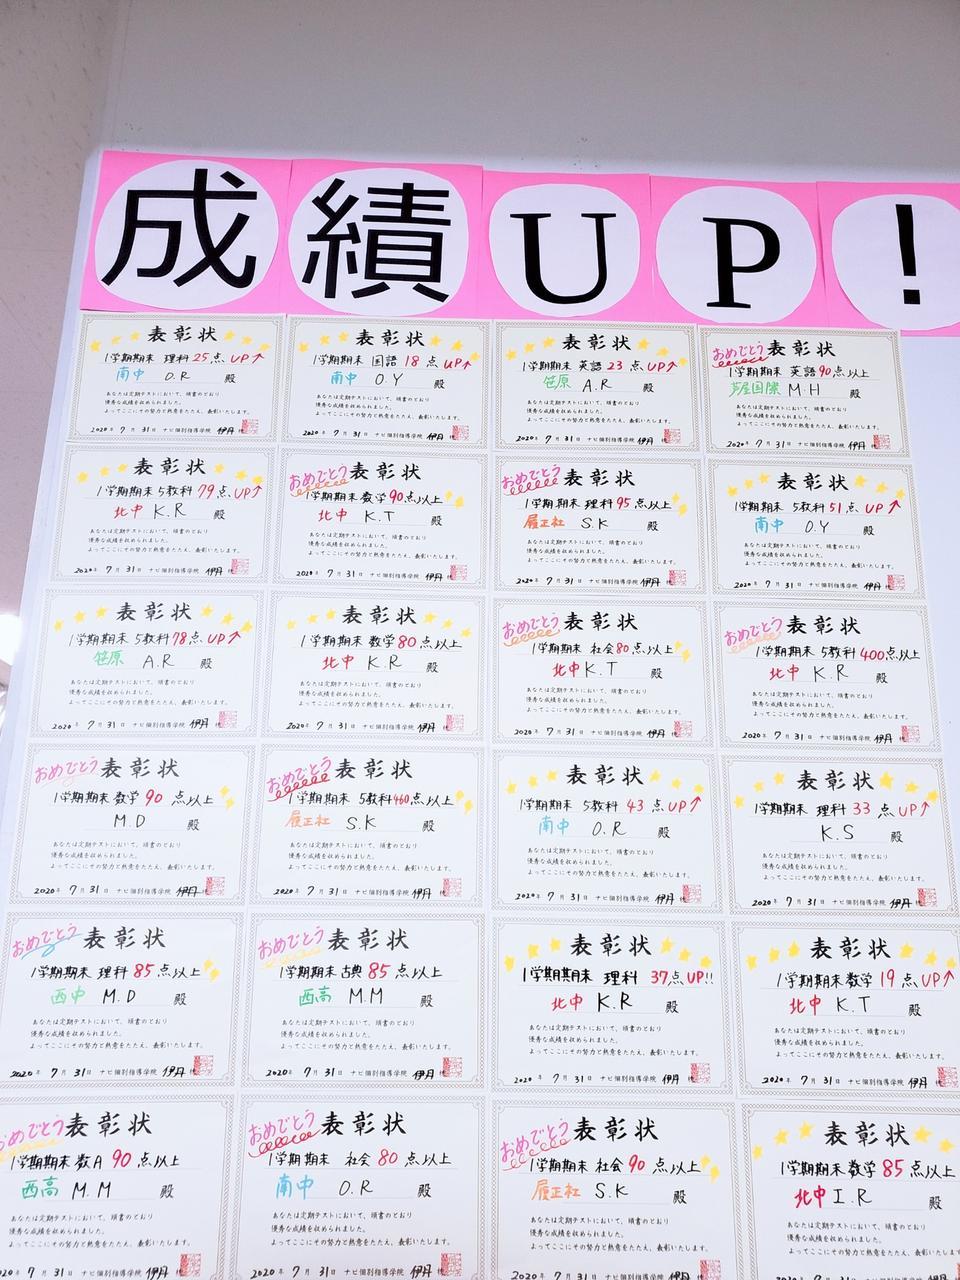 成績UP!
表彰状
1学期期末 理科 25点 UP↑
南中 O.R 殿
あなたは定期テストにおいて、頭書のとおり
優秀な成績を収められました。
よってここにその努力と熱意をたたえ、表彰いたします。
2020年 7月 31日 ナビ個別指導学院 伊丹校
表彰状
1学期期末 国語 18点 UP↑
南中 O.Y 殿
あなたは定期テストにおいて、頭書のとおり
優秀な成績を収められました。
よってここにその努力と熱意をたたえ、表彰いたします。
2020年 7月 31日 ナビ個別指導学院 伊丹校
表彰状
1学期期末 英語 23点 UP↑
笹原 A.R 殿
あなたは定期テストにおいて、頭書のとおり
優秀な成績を収められました。
よってここにその努力と熱意をたたえ、表彰いたします。
2020年 7月 31日 ナビ個別指導学院 伊丹校
おめでとう 表彰状
1学期期末 英語 90点以上
芦屋国際 M.H 殿
あなたは定期テストにおいて、頭書のとおり
優秀な成績を収められました。
よってここにその努力と熱意をたたえ、表彰いたします。
2020年 7月 31日 ナビ個別指導学院 伊丹校
表彰状
1学期期末 5教科 79点 UP↑
北中 K.R 殿
あなたは定期テストにおいて、頭書のとおり
優秀な成績を収められました。
よってここにその努力と熱意をたたえ、表彰いたします。
2020年 7月 31日 ナビ個別指導学院 伊丹校
おめでとう 表彰状
1学期期末 数学 90点以上
北中 K.T 殿
あなたは定期テストにおいて、頭書のとおり
優秀な成績を収められました。
よってここにその努力と熱意をたたえ、表彰いたします。
2020年 7月 31日 ナビ個別指導学院 伊丹校
おめでとう 表彰状
1学期期末 理科 95点以上
履正社 S.K 殿
あなたは定期テストにおいて、頭書のとおり
優秀な成績を収められました。
よってここにその努力と熱意をたたえ、表彰いたします。
2020年 7月 31日 ナビ個別指導学院 伊丹校
表彰状
1学期期末 5教科 51点 UP↑
南中 O.Y 殿
あなたは定期テストにおいて、頭書のとおり
優秀な成績を収められました。
よってここにその努力と熱意をたたえ、表彰いたします。
2020年 7月 31日 ナビ個別指導学院 伊丹校
表彰状
1学期期末 5教科 78点 UP↑
笹原 A.R 殿
あなたは定期テストにおいて、頭書のとおり
優秀な成績を収められました。
よってここにその努力と熱意をたたえ、表彰いたします。
2020年 7月 31日 ナビ個別指導学院 伊丹校
表彰状
1学期期末 数学 80点以上
北中 K.R 殿
あなたは定期テストにおいて、頭書のとおり
優秀な成績を収められました。
よってここにその努力と熱意をたたえ、表彰いたします。
2020年 7月 31日 ナビ個別指導学院 伊丹校
おめでとう 表彰状
1学期期末 社会 80点以上
北中 K.T 殿
あなたは定期テストにおいて、頭書のとおり
優秀な成績を収められました。
よってここにその努力と熱意をたたえ、表彰いたします。
2020年 7月 31日 ナビ個別指導学院 伊丹校
おめでとう 表彰状
1学期期末 5教科 400点以上
北中 K.R 殿
あなたは定期テストにおいて、頭書のとおり
優秀な成績を収められました。
よってここにその努力と熱意をたたえ、表彰いたします。
2020年 7月 31日 ナビ個別指導学院 伊丹校
おめでとう 表彰状
1学期期末 数学 90点以上
M.D 殿
あなたは定期テストにおいて、頭書のとおり
優秀な成績を収められました。
よってここにその努力と熱意をたたえ、表彰いたします。
2020年 7月 31日 ナビ個別指導学院 伊丹校
おめでとう 表彰状
1学期期末 5教科 460点以上
履正社 S.K 殿
あなたは定期テストにおいて、頭書のとおり
優秀な成績を収められました。
よってここにその努力と熱意をたたえ、表彰いたします。
2020年 7月 31日 ナビ個別指導学院 伊丹校
表彰状
1学期期末 5教科 43点 UP↑
南中 O.R 殿
あなたは定期テストにおいて、頭書のとおり
優秀な成績を収められました。
よってここにその努力と熱意をたたえ、表彰いたします。
2020年 7月 31日 ナビ個別指導学院 伊丹校
表彰状
1学期期末 理科 33点 UP↑
K.S 殿
あなたは定期テストにおいて、頭書のとおり
優秀な成績を収められました。
よってここにその努力と熱意をたたえ、表彰いたします。
2020年 7月 31日 ナビ個別指導学院 伊丹校
おめでとう 表彰状
1学期期末 理科 85点以上
西中 M.D 殿
あなたは定期テストにおいて、頭書のとおり
優秀な成績を収められました。
よってここにその努力と熱意をたたえ、表彰いたします。
2020年 7月 31日 ナビ個別指導学院 伊丹校
おめでとう 表彰状
1学期期末 古典 85点以上
西高 M.M 殿
あなたは定期テストにおいて、頭書のとおり
優秀な成績を収められました。
よってここにその努力と熱意をたたえ、表彰いたします。
2020年 7月 31日 ナビ個別指導学院 伊丹校
表彰状
1学期期末 理科 37点 UP!!
北中 K.R 殿
あなたは定期テストにおいて、頭書のとおり
優秀な成績を収められました。
よってここにその努力と熱意をたたえ、表彰いたします。
2020年 7月 31日 ナビ個別指導学院 伊丹校
表彰状
1学期期末 数学 19点 UP↑
北中 K.T 殿
あなたは定期テストにおいて、頭書のとおり
優秀な成績を収められました。
よってここにその努力と熱意をたたえ、表彰いたします。
2020年 7月 31日 ナビ個別指導学院 伊丹
おめでとう 表彰状
1学期期末 数A 90点以上
西高 M.M 殿
あなたは定期テストにおいて、頭書のとおり
優秀な成績を収められました。
よってここにその努力と熱意をたたえ、表彰いたします。
7月 31日 ナビ個別指導学院 伊丹校
おめでとう 表彰状
1学期期末 社会 80点以上
南中 O.R 殿
あなたは定期テストにおいて、頭書のとおり
優秀な成績を収められました。
よってここにその努力と熱意をたたえ、表彰いたします。
2020年 7月 31日 ナビ個別指導学院 伊丹校
おめでとう 表彰状
1学期期末 社会 90点以上
履正社 S.K 殿
あなたは定期テストにおいて、頭書のとおり
優秀な成績を収められました。
よってここにその努力と熱意をたたえ、表彰いたします。
2020年 7月 31日 ナビ個別指導学院 伊丹校
表彰状
1学期期末 数学 85点以上
北中 I.R 殿
あなたは定期テストにおいて、頭書のとおり
優秀な成績を収められました。
よってここにその努力と熱意をたたえ、表彰いたします。